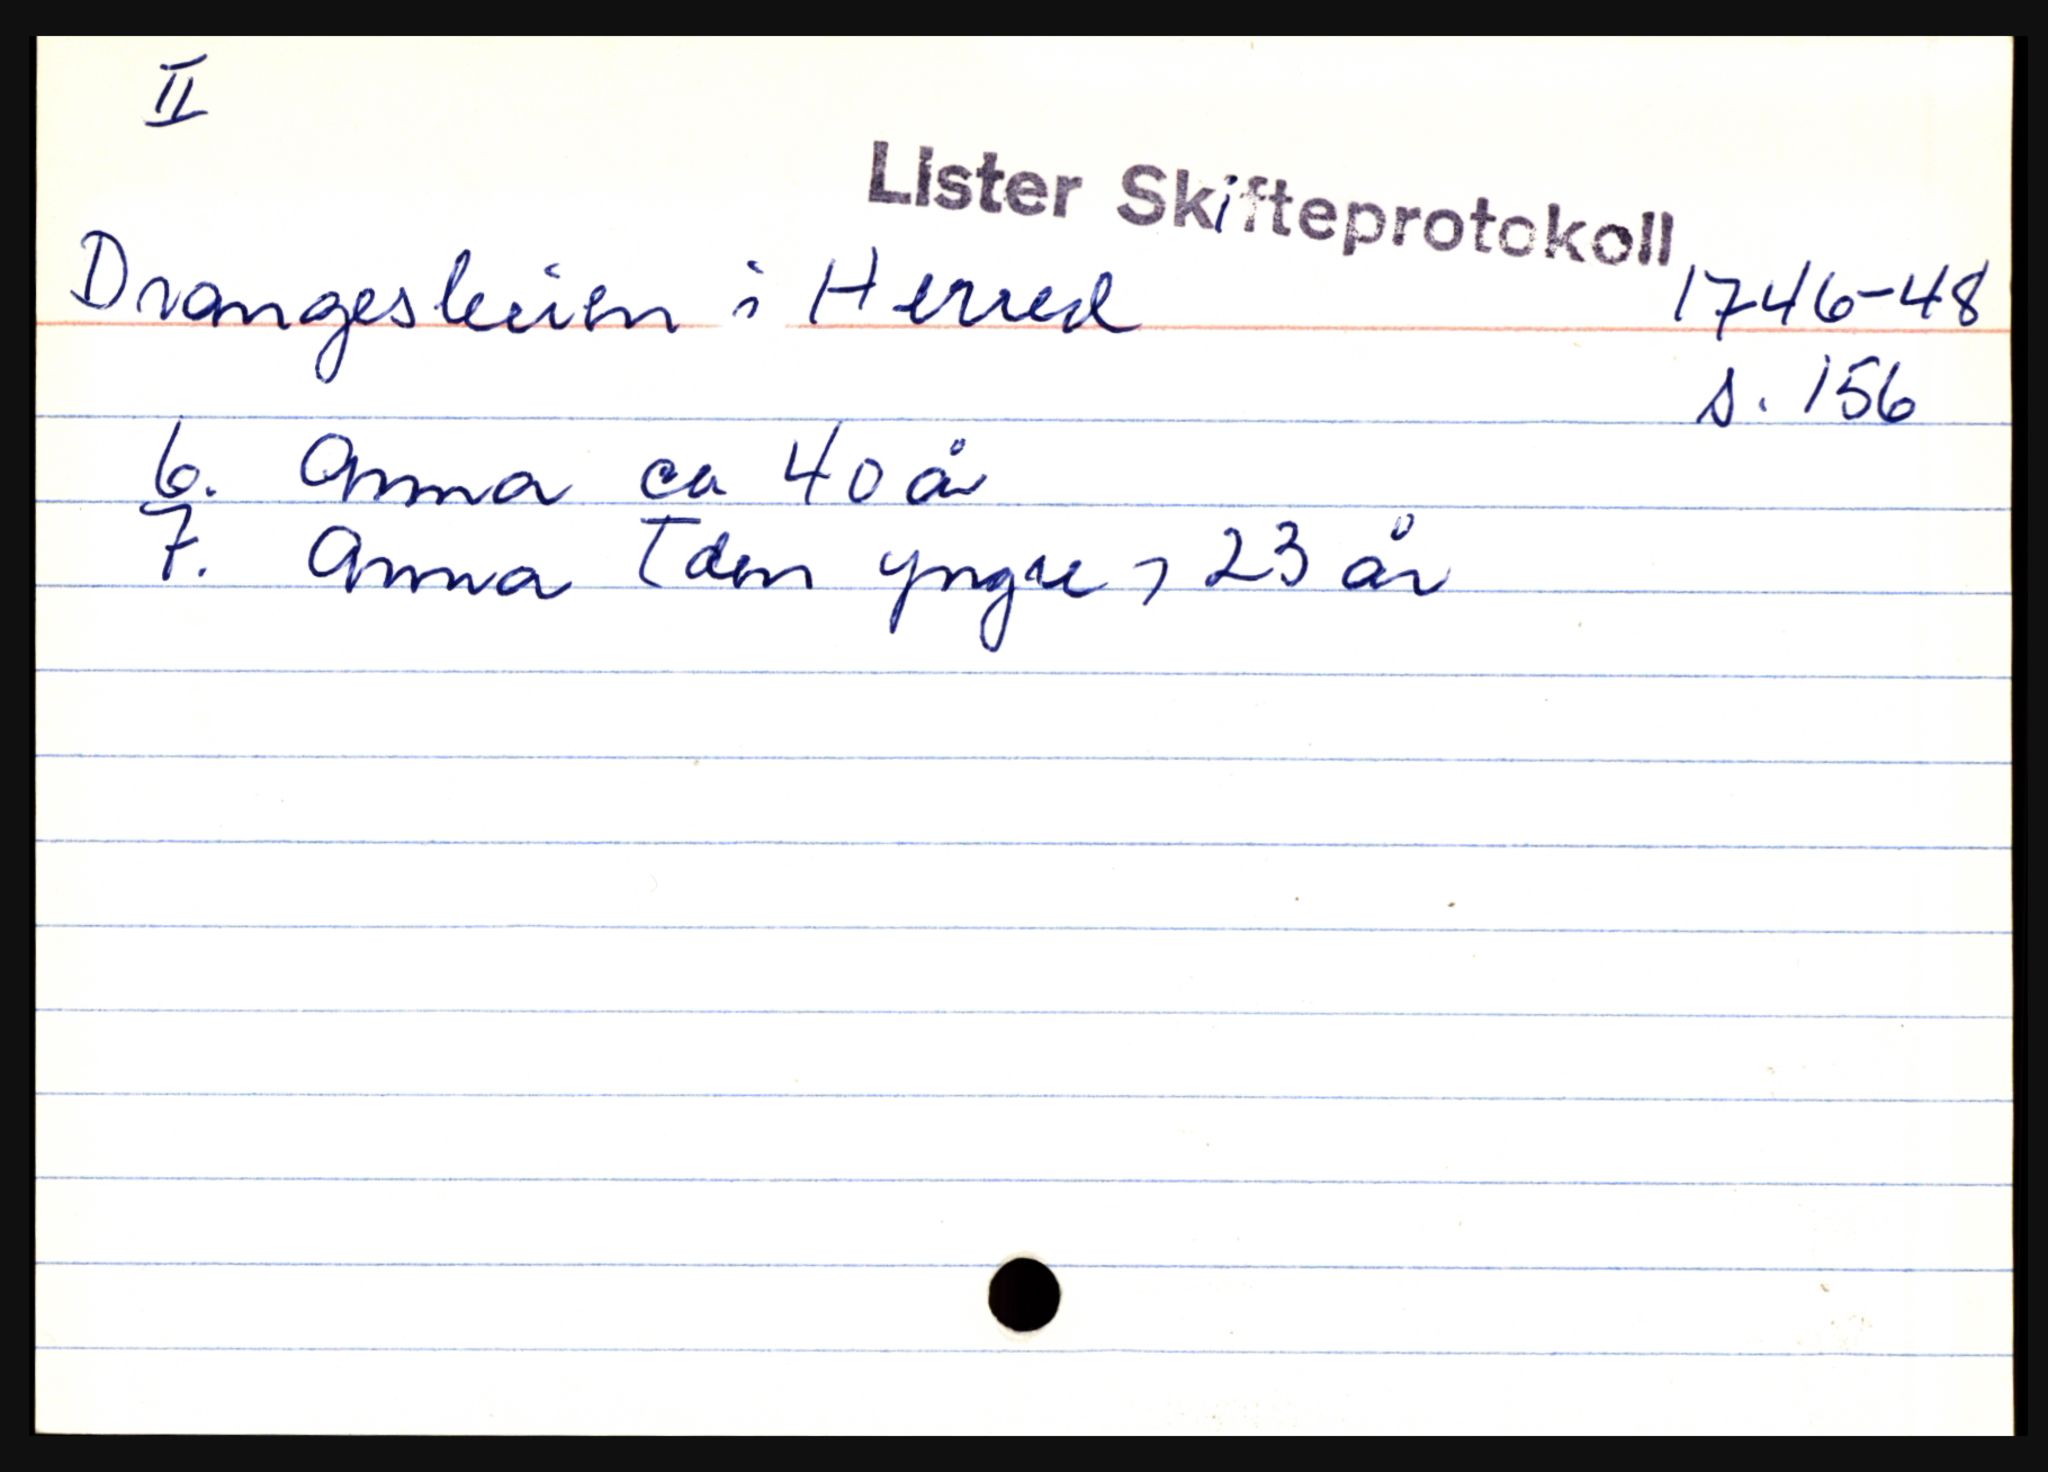 II
Lister Skifteprotokoll
Drangesleien i Herred 1746-48
s. 156
6. Anna ca 40 år
7. Anna Iden yngre, 23 år